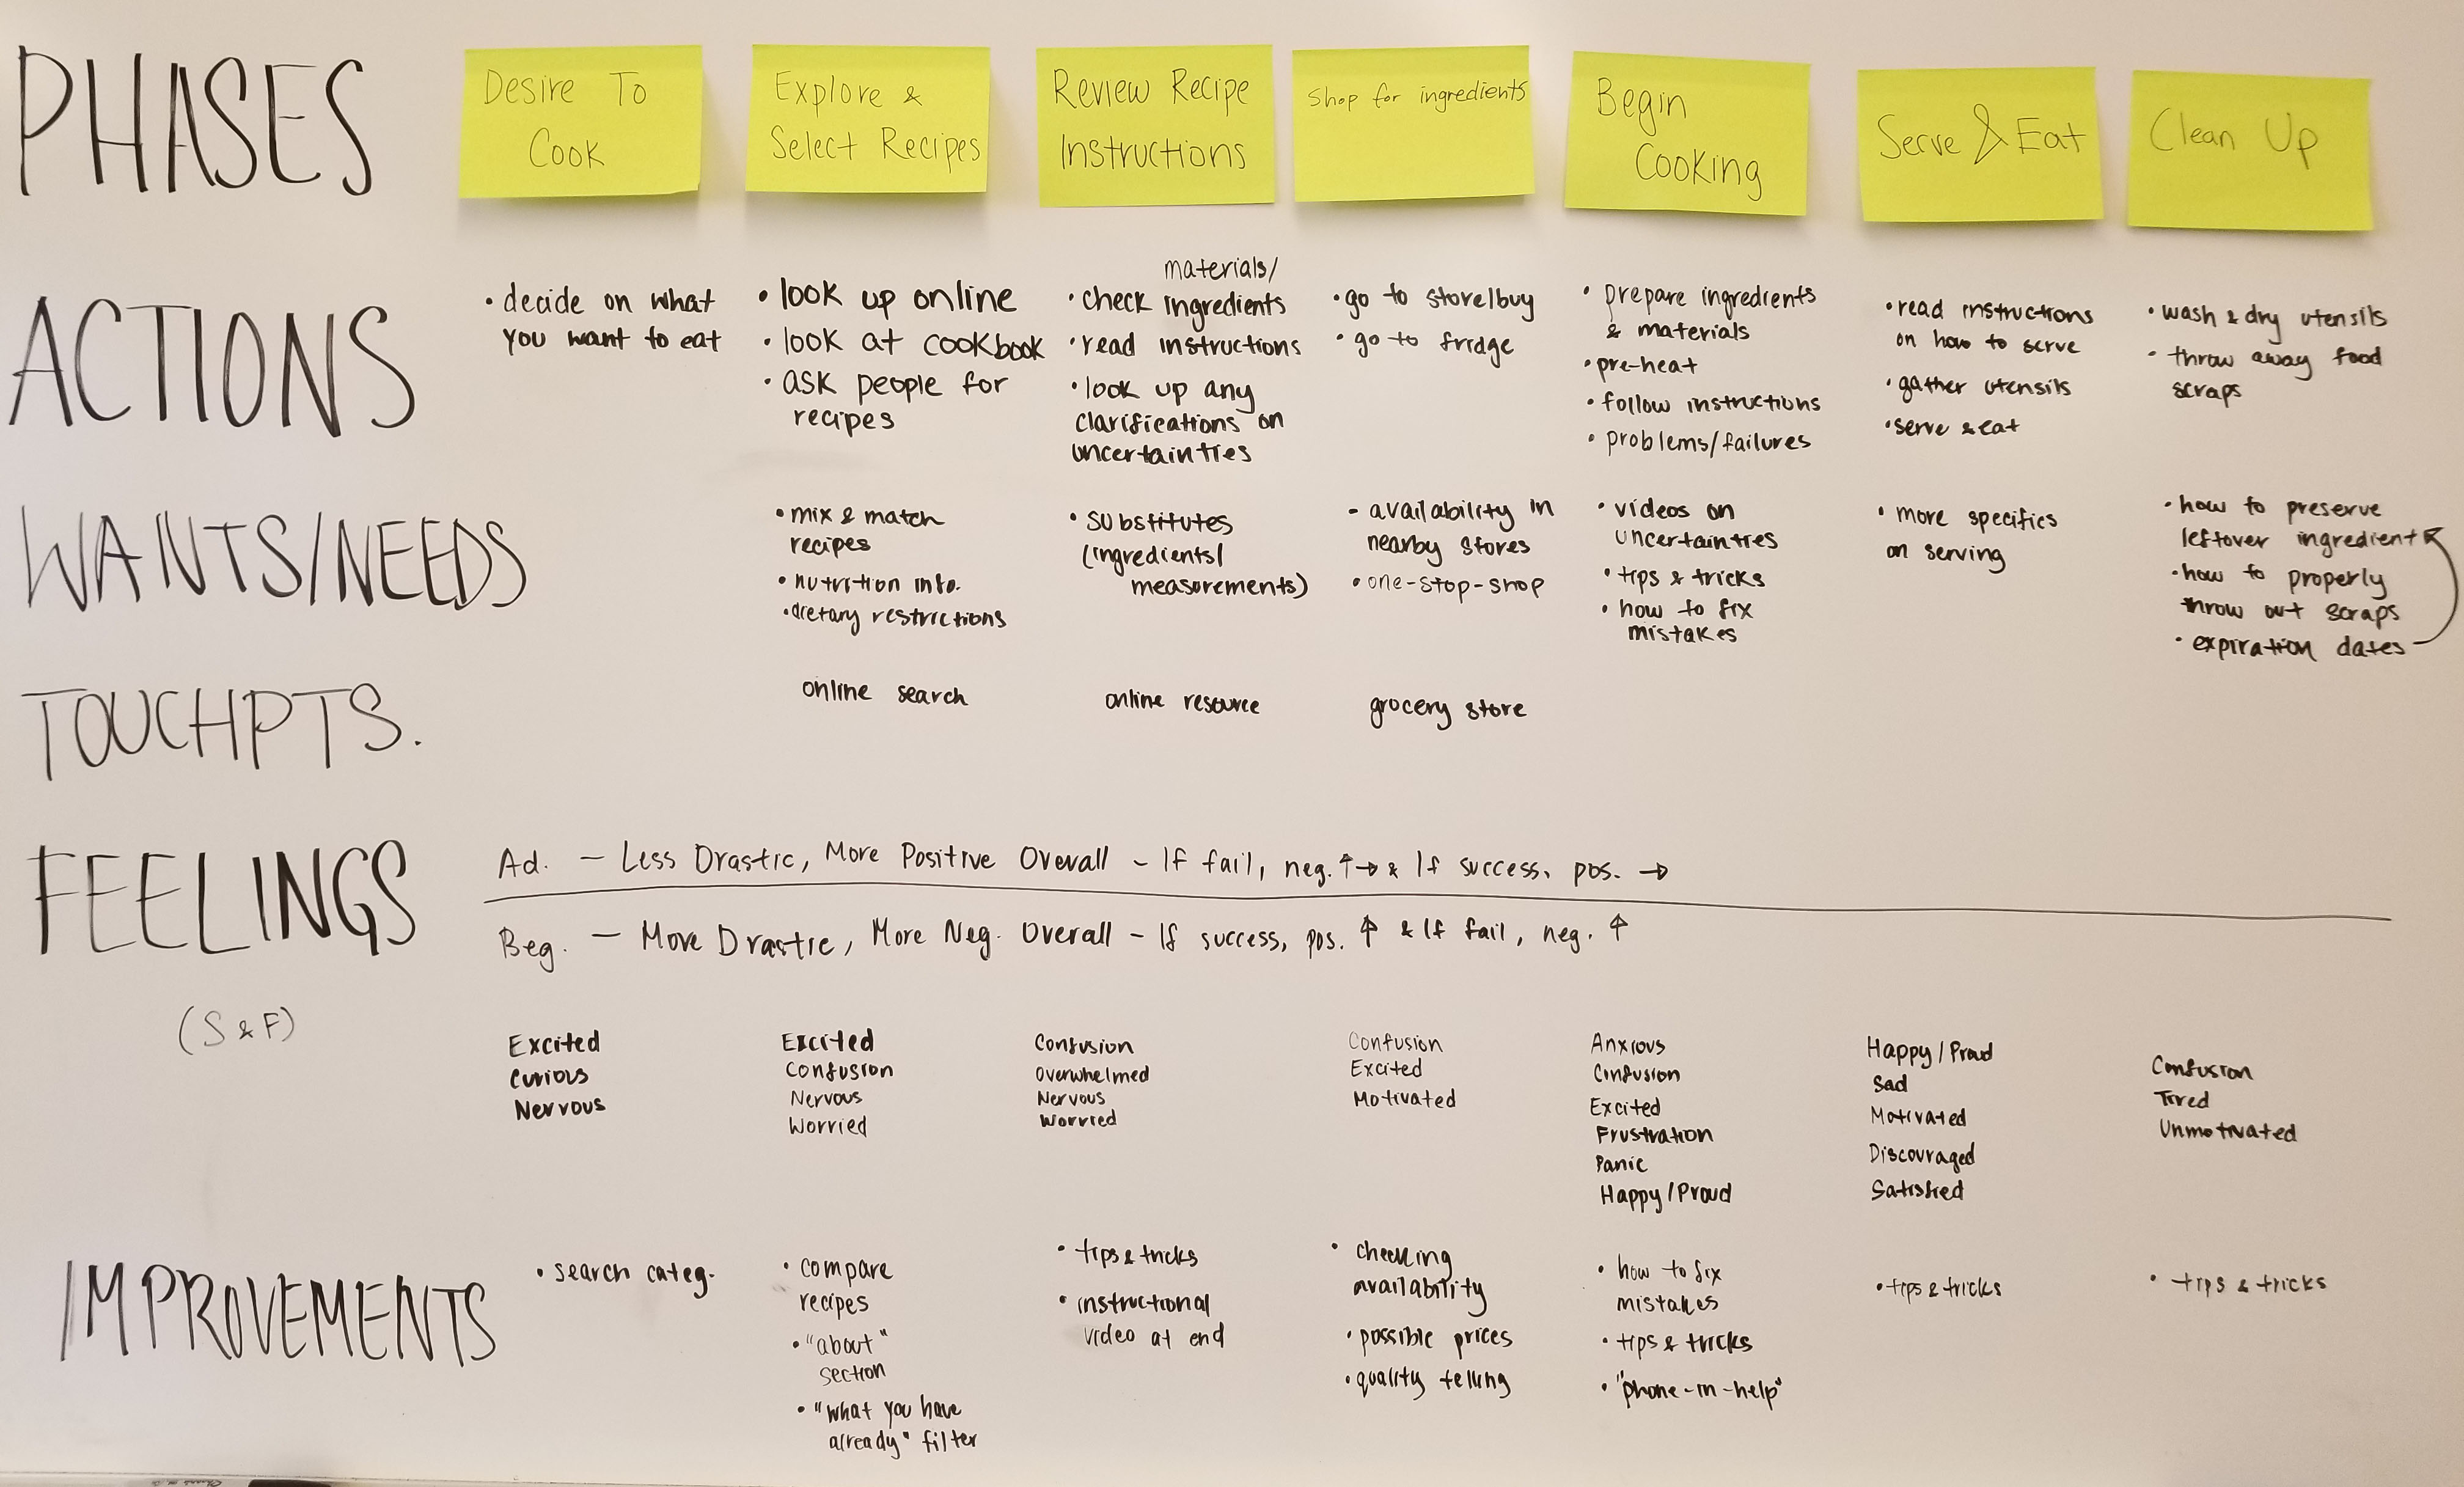 PHASES
Desire To
Cook
Explore &
Select Recipes
Review Recipe
Instructions
Shop for ingredients
Begin
Cooking
Serve & Eat
Clean Up
ACTIONS
• decide on what
you want to eat
• look up online
• look at cookbook
• ask people for
recipes
materials/
• check ingredients
• read instructions
• look up any
clarifications on
uncertainties
• go to store/buy
• go to fridge
• prepare ingredients
& materials
• pre-heat
• follow instructions
• problems/failures
• read instructions
on how to serve
• gather utensils
• serve & eat
• wash & dry utensils
• throw away food
scraps
WANTS/NEEDS
• mix & match
recipes
• nutrition info.
• dietary restrictions
• substitutes
(ingredients/
measurements)
- availability in
nearby stores
• one-stop-shop
• videos on
uncertainties
• tips & tricks
• how to fix
mistakes
• more specifics
on serving
• how to preserve
leftover ingredient
• how to properly
throw out scraps
• expiration dates
TOUCHPTS.
online search
online resource
grocery store
FEELINGS
(S & F)
Ad. — Less Drastic, More Positive Overall - If fail, neg. ↑→ & If success, pos. →
Beg. — More Drastic, More Neg. Overall - If success, pos. ↑ & If fail, neg. ↑
Excited
Curious
Nervous
Excited
Confusion
Nervous
Worried
Confusion
Overwhelmed
Nervous
Worried
Confusion
Excited
Motivated
Anxious
Confusion
Excited
Frustration
Panic
Happy/Proud
Happy/Proud
Sad
Motivated
Discouraged
Satisfied
Confusion
Tired
Unmotivated
IMPROVEMENTS
• search categ.
• compare
recipes
• "about"
section
• "what you have
already" filter
• tips & tricks
• instructional
video at end
• checking
availability
• possible prices
• quality telling
• how to fix
mistakes
• tips & tricks
• "phone-in-help"
• tips & tricks
• tips & tricks